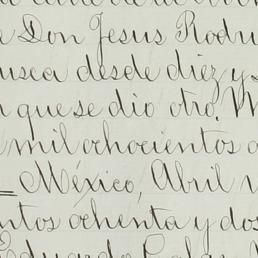 e Don Jesus Rodri
usca desde diez y s
n que se dio otro. M
mil ochocientos o
México, Abril v
ntos ochenta y dos
Eduardo